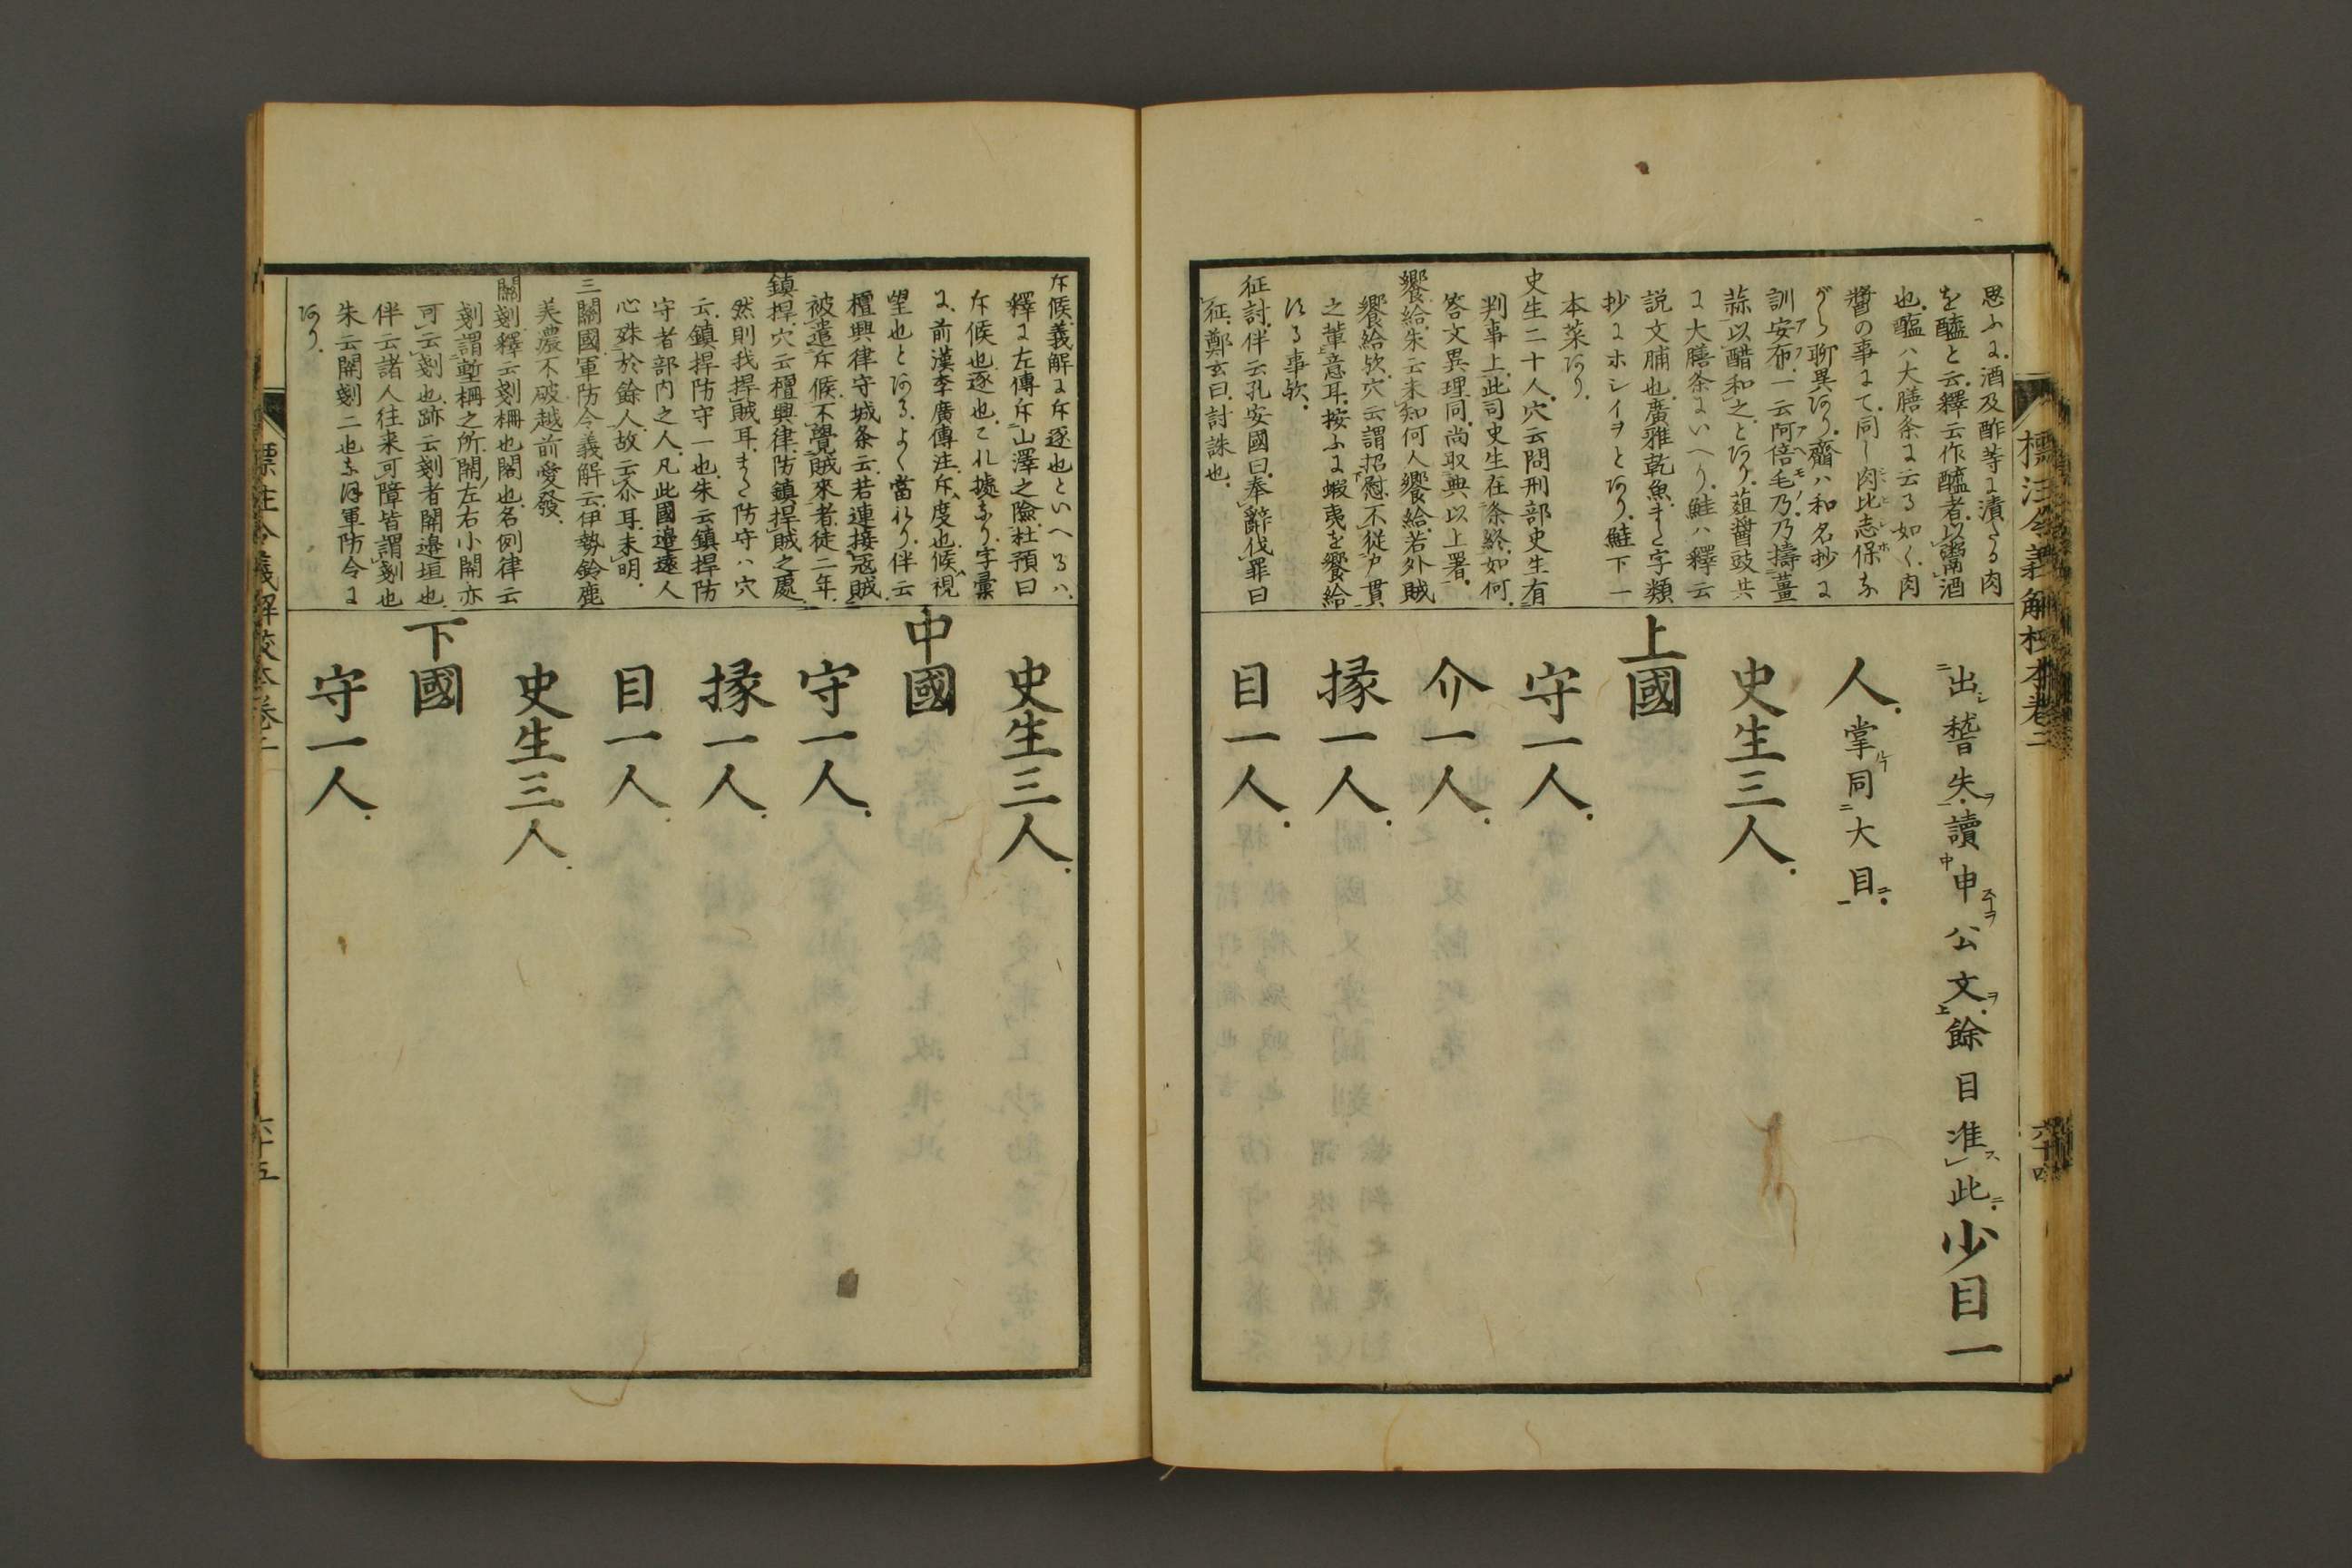 標注令義解校本卷二
六十四
思ふに酒及酢等に漬たる肉
を醢と云釋云作醢者以鬻酒
也醢ハ大膳条に云る如く肉
醬の事にて同し肉比志保な
がら聊異あり齏ハ和名抄に
訓安布一云阿倍毛乃乃擣薑
蒜以醋和之とあり葅醬豉共
に大膳条にいへり鮭ハ釋云
説文脯也廣雅乾魚また字類
抄にホシイヲとあり鮭下一
本菜あり
史生二十人穴云問刑部史生有
判事上此司史生在条終如何
答文異理同尚取典以上署
饗給朱云未知何人饗給若外賊
饗給欤穴云謂招慰不從戸貫
之輩意耳按ふに蝦夷を饗給
ける事欤
征討伴云孔安國曰奉辭伐罪曰
征鄭玄曰討誅也
出稽失讀申公文餘目准此少目一
人掌同大目
史生三人
上國
守一人
介一人
掾一人
目一人
斥候義解に斥逐也といへるハ
釋に左傳斥山澤之險杜預曰
斥候也逐也これ據なり字彙
に前漢李廣傳注斥度也候視
望也とあるよく當れり伴云
檀興律守城条云若連接冦賊
被遣斥候不覺賊來者徒二年
鎮捍穴云檀興律防鎮捍賊之處
然則我捍賊耳また防守ハ穴
云鎮捍防守一也朱云鎮捍防
守者部内之人凡此國邊遠人
心殊於餘人故云尒耳未明
三關國軍防令義解云伊勢鈴鹿
美濃不破越前愛發
關剗釋云剗柵也關也名例律云
剗謂塹柵之所關左右小關亦
可云剗也跡云剗者關邊垣也
伴云諸人往来可障皆謂剗也
朱云關剗二也なほ軍防令に
あり
史生三人
中國
守一人
掾一人
目一人
史生三人
下國
守一人
標注令義解校本卷二
六十五